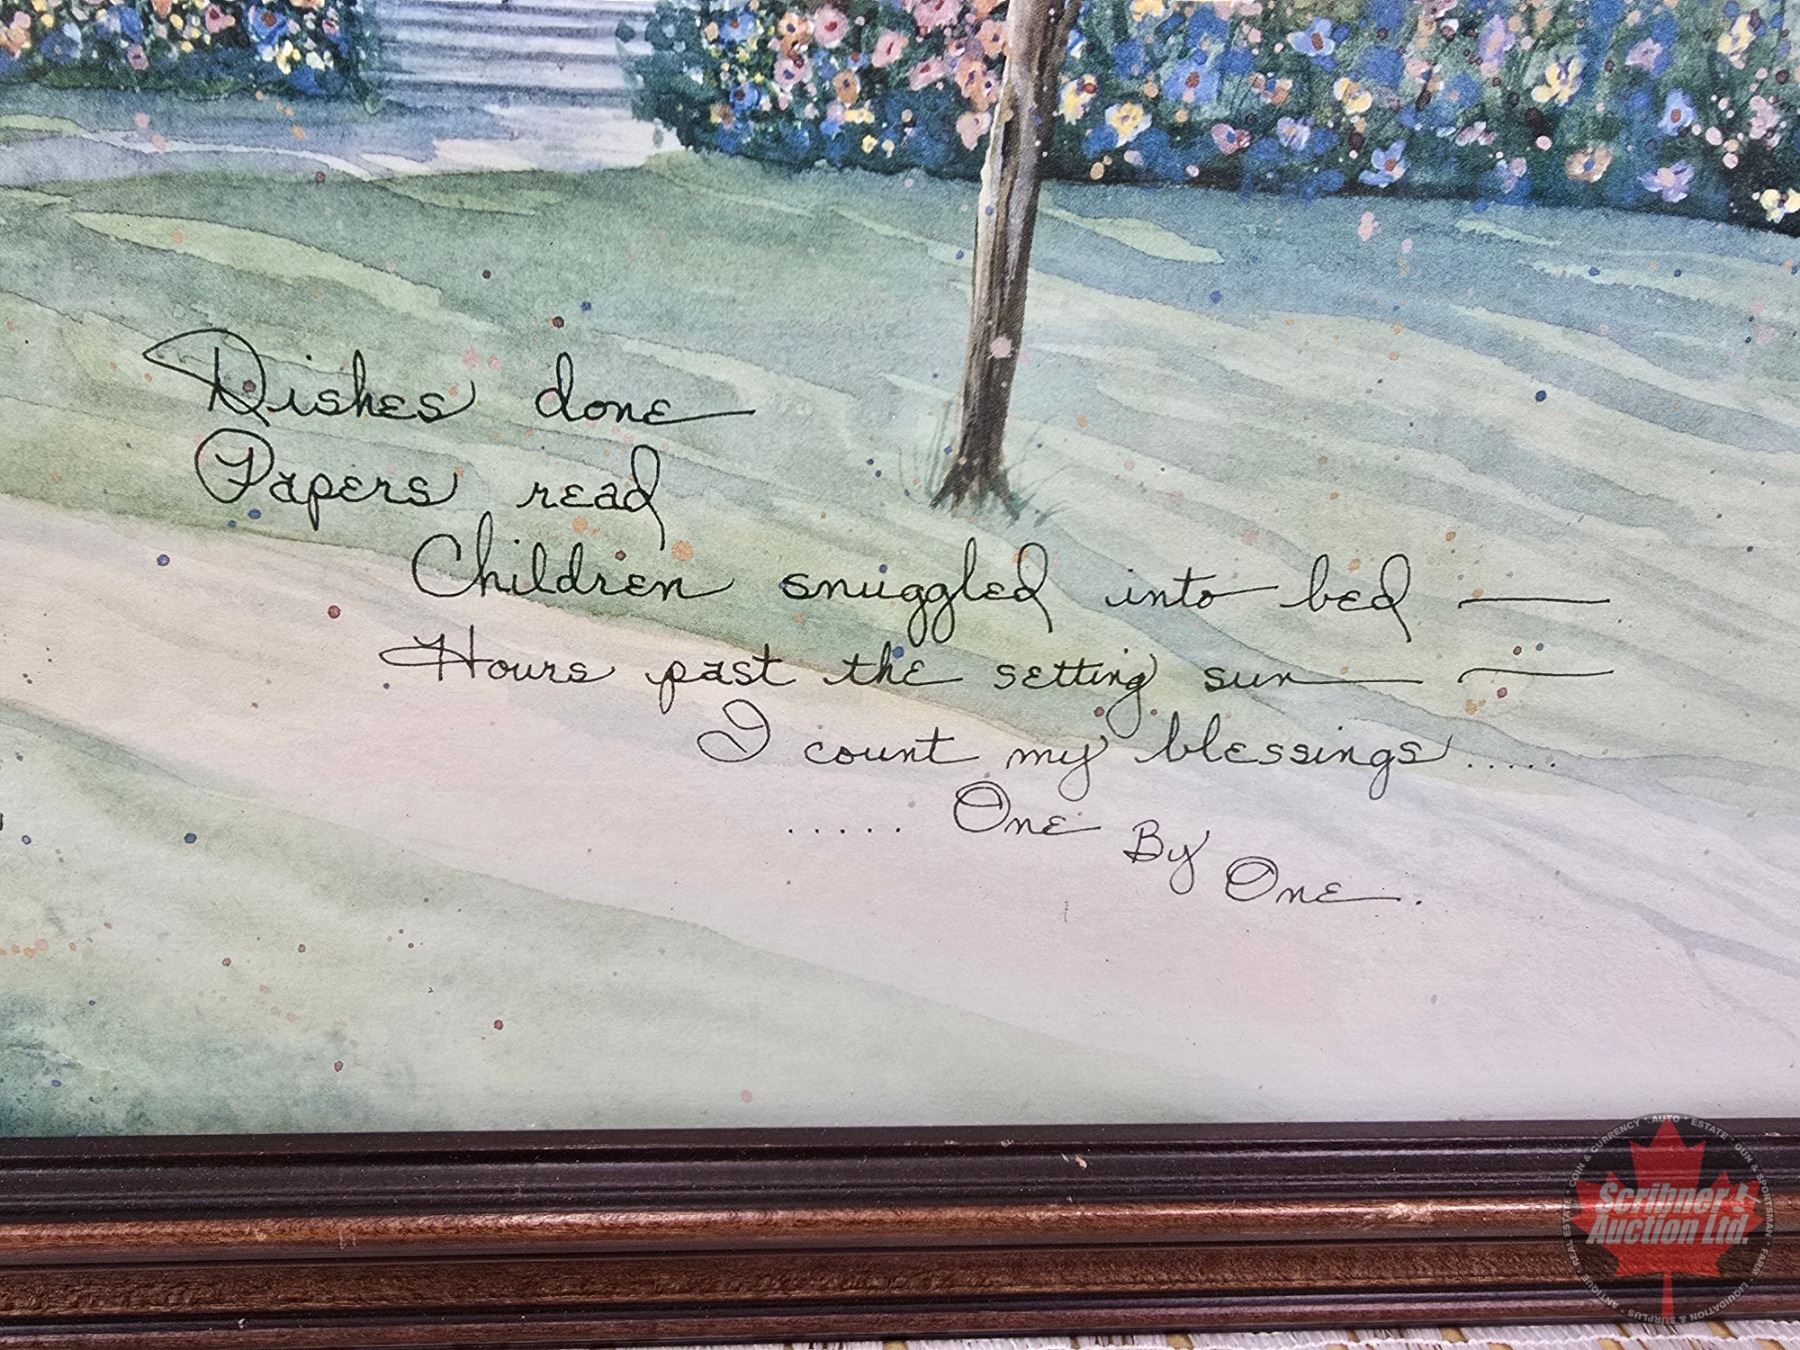 Dishes done
Papers read
Children snuggled into bed —
Hours past the setting sun —
I count my blessings.....
..... One By One.
Scribner Auction Ltd.
COIN & CURRENCY · AUTO · ESTATE · GUN & SPORTSMAN · FARM · LIQUIDATION & SURPLUS · ANTIQUE · REAL ESTATE